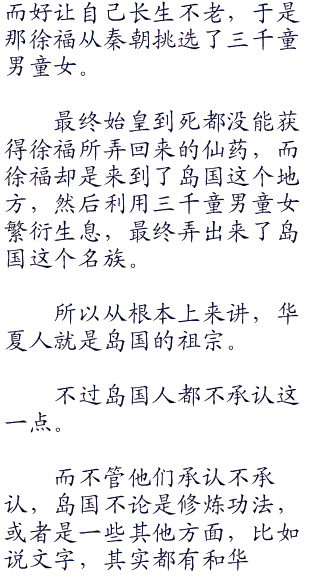 而好让自己长生不老，于是
那徐福从秦朝挑选了三千童
男童女。
最终始皇到死都没能获
得徐福所弄回来的仙药，而
徐福却是来到了岛国这个地
方，然后利用三千童男童女
繁衍生息，最终弄出来了岛
国这个名族。
所以从根本上来讲，华
夏人就是岛国的祖宗。
不过岛国人都不承认这
一点。
而不管他们承认不承
认，岛国不论是修炼功法，
或者是一些其他方面，比如
说文字，其实都有和华